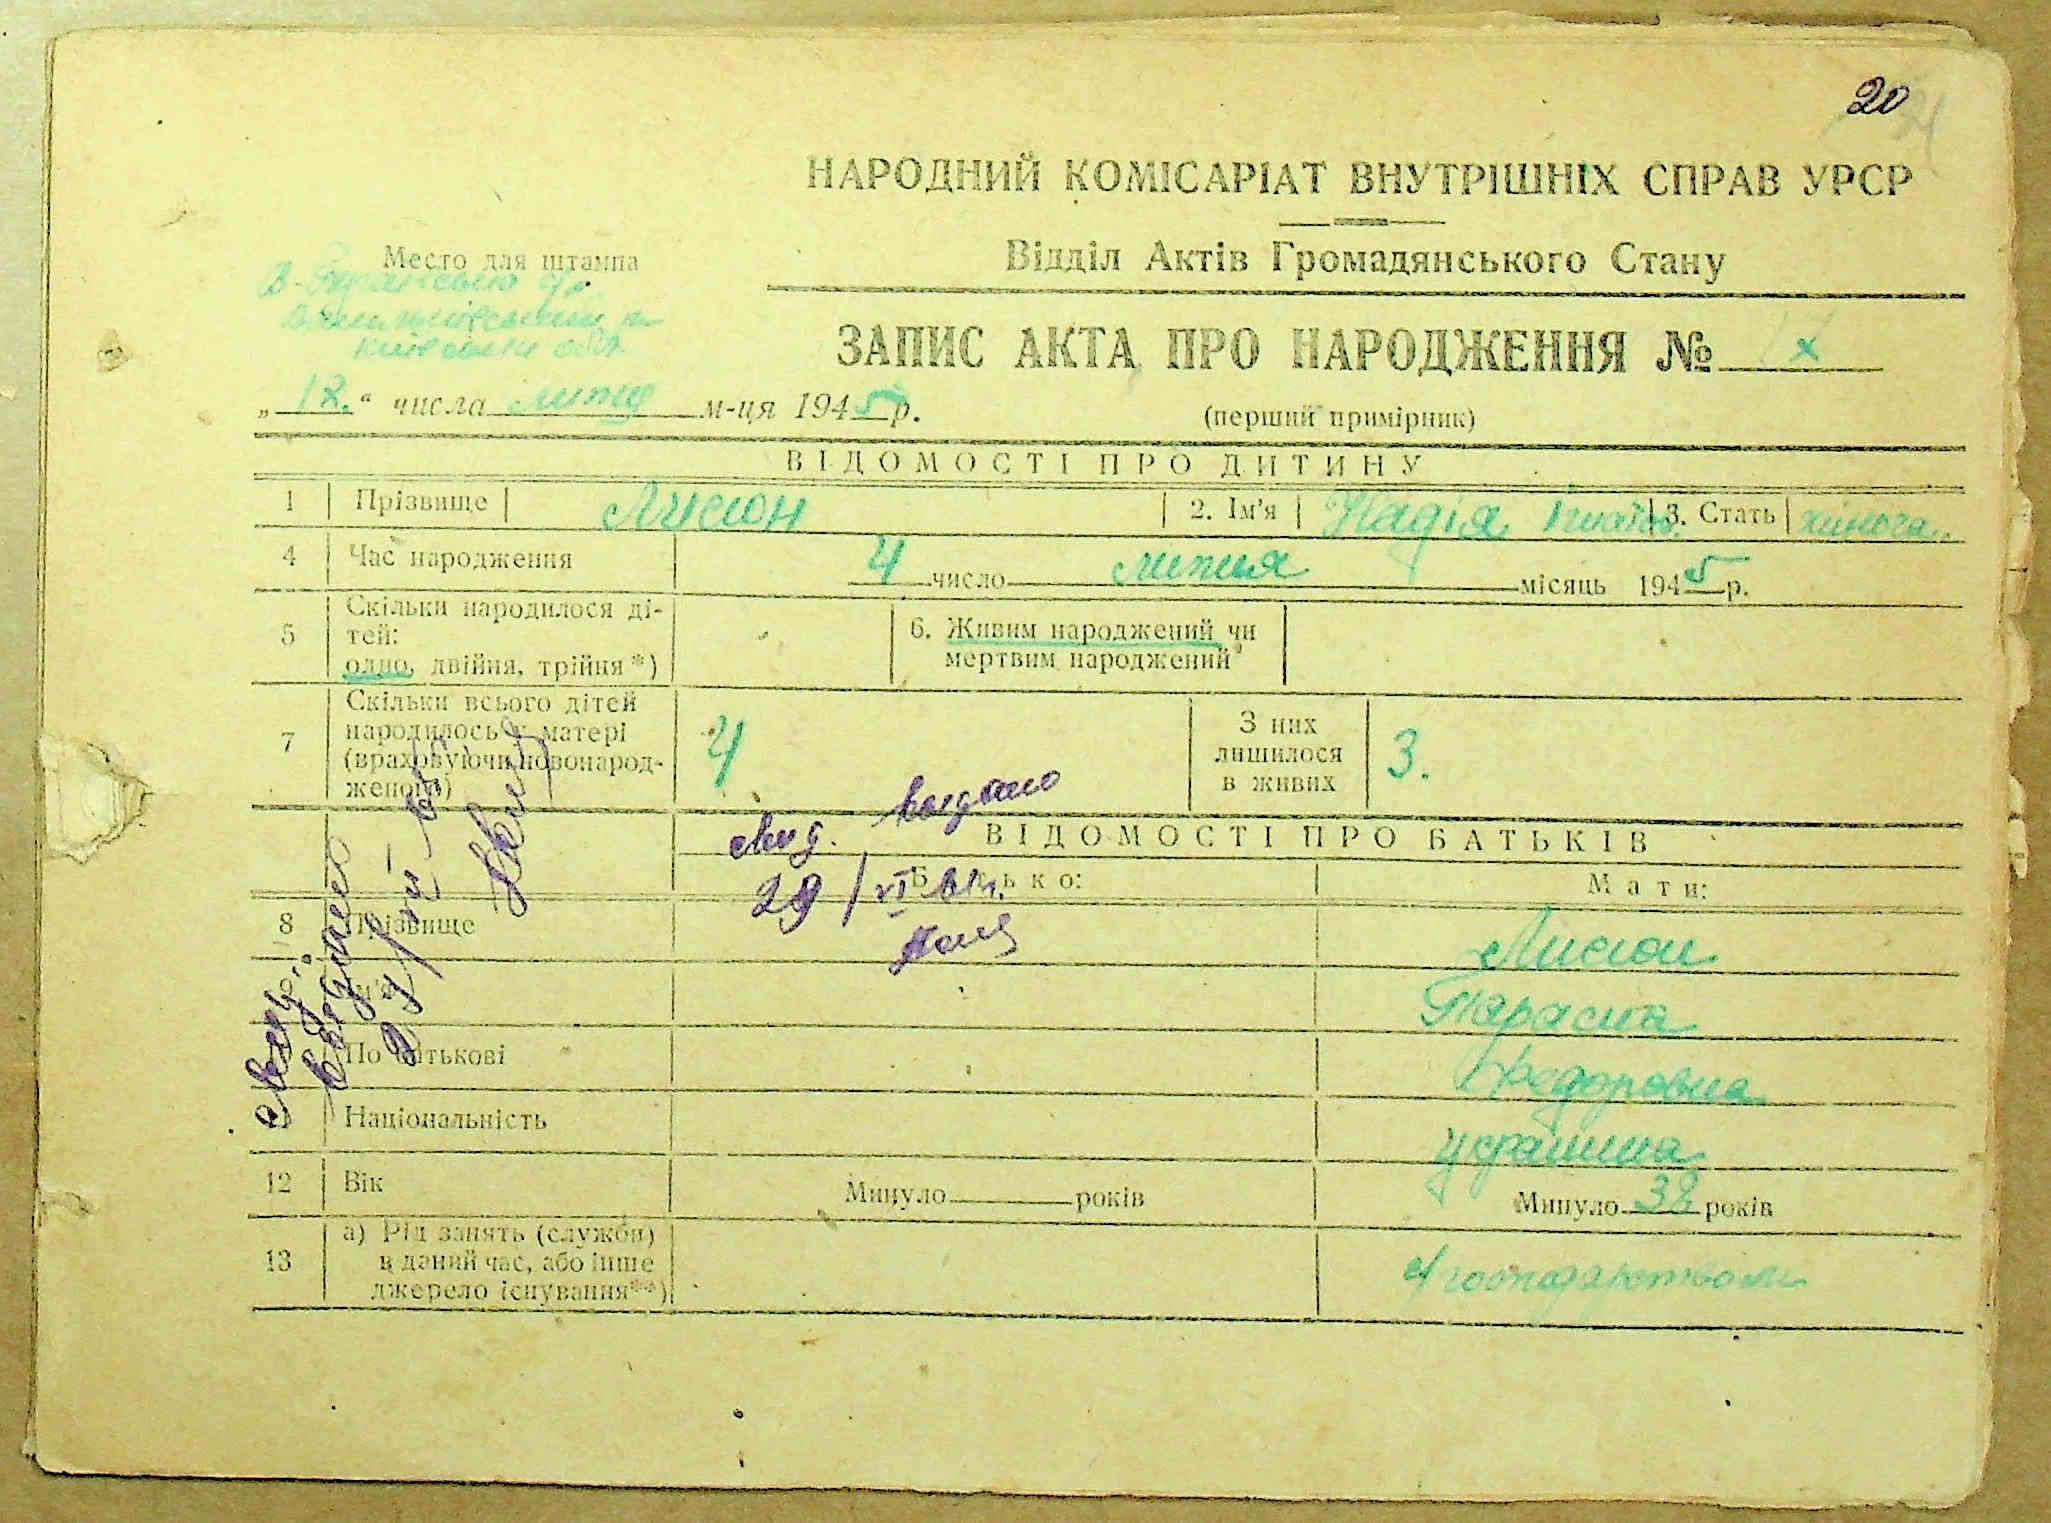 20
НАРОДНИЙ КОМІСАРІАТ ВНУТРІШНІХ СПРАВ УРСР
Место для штампа
Відділ Актів Громадянського Стану
ЗАПИС АКТА ПРО НАРОДЖЕННЯ №
„12.“ числа липня м-ця 1945 р.
(перший примірник)
ВІДОМОСТІ ПРО ДИТИНУ
1 Прізвище Лисюн 2. Ім'я Надія 3. Стать жіноча
4 Час народження 4 число липня місяць 1945 р.
5 Скільки народилося ді-
тей:
одно, двійня, трійня*)
6. Живим народжений чи
мертвим народжений
7 Скільки всього дітей
народилось у матері
(враховуючи новонарод-
женого)
4
З них
лишилося
в живих
3.
выдано
ВІДОМОСТІ ПРО БАТЬКІВ
Батько: Мати:
29/VI
8 Прізвище Лисюн
Ім'я Параска
По батькові Федоровна
Національність українка
12 Вік Минуло років Минуло 38 років
13 а) Рід занять (служби)
в даний час, або інше
джерело існування**)
господарством